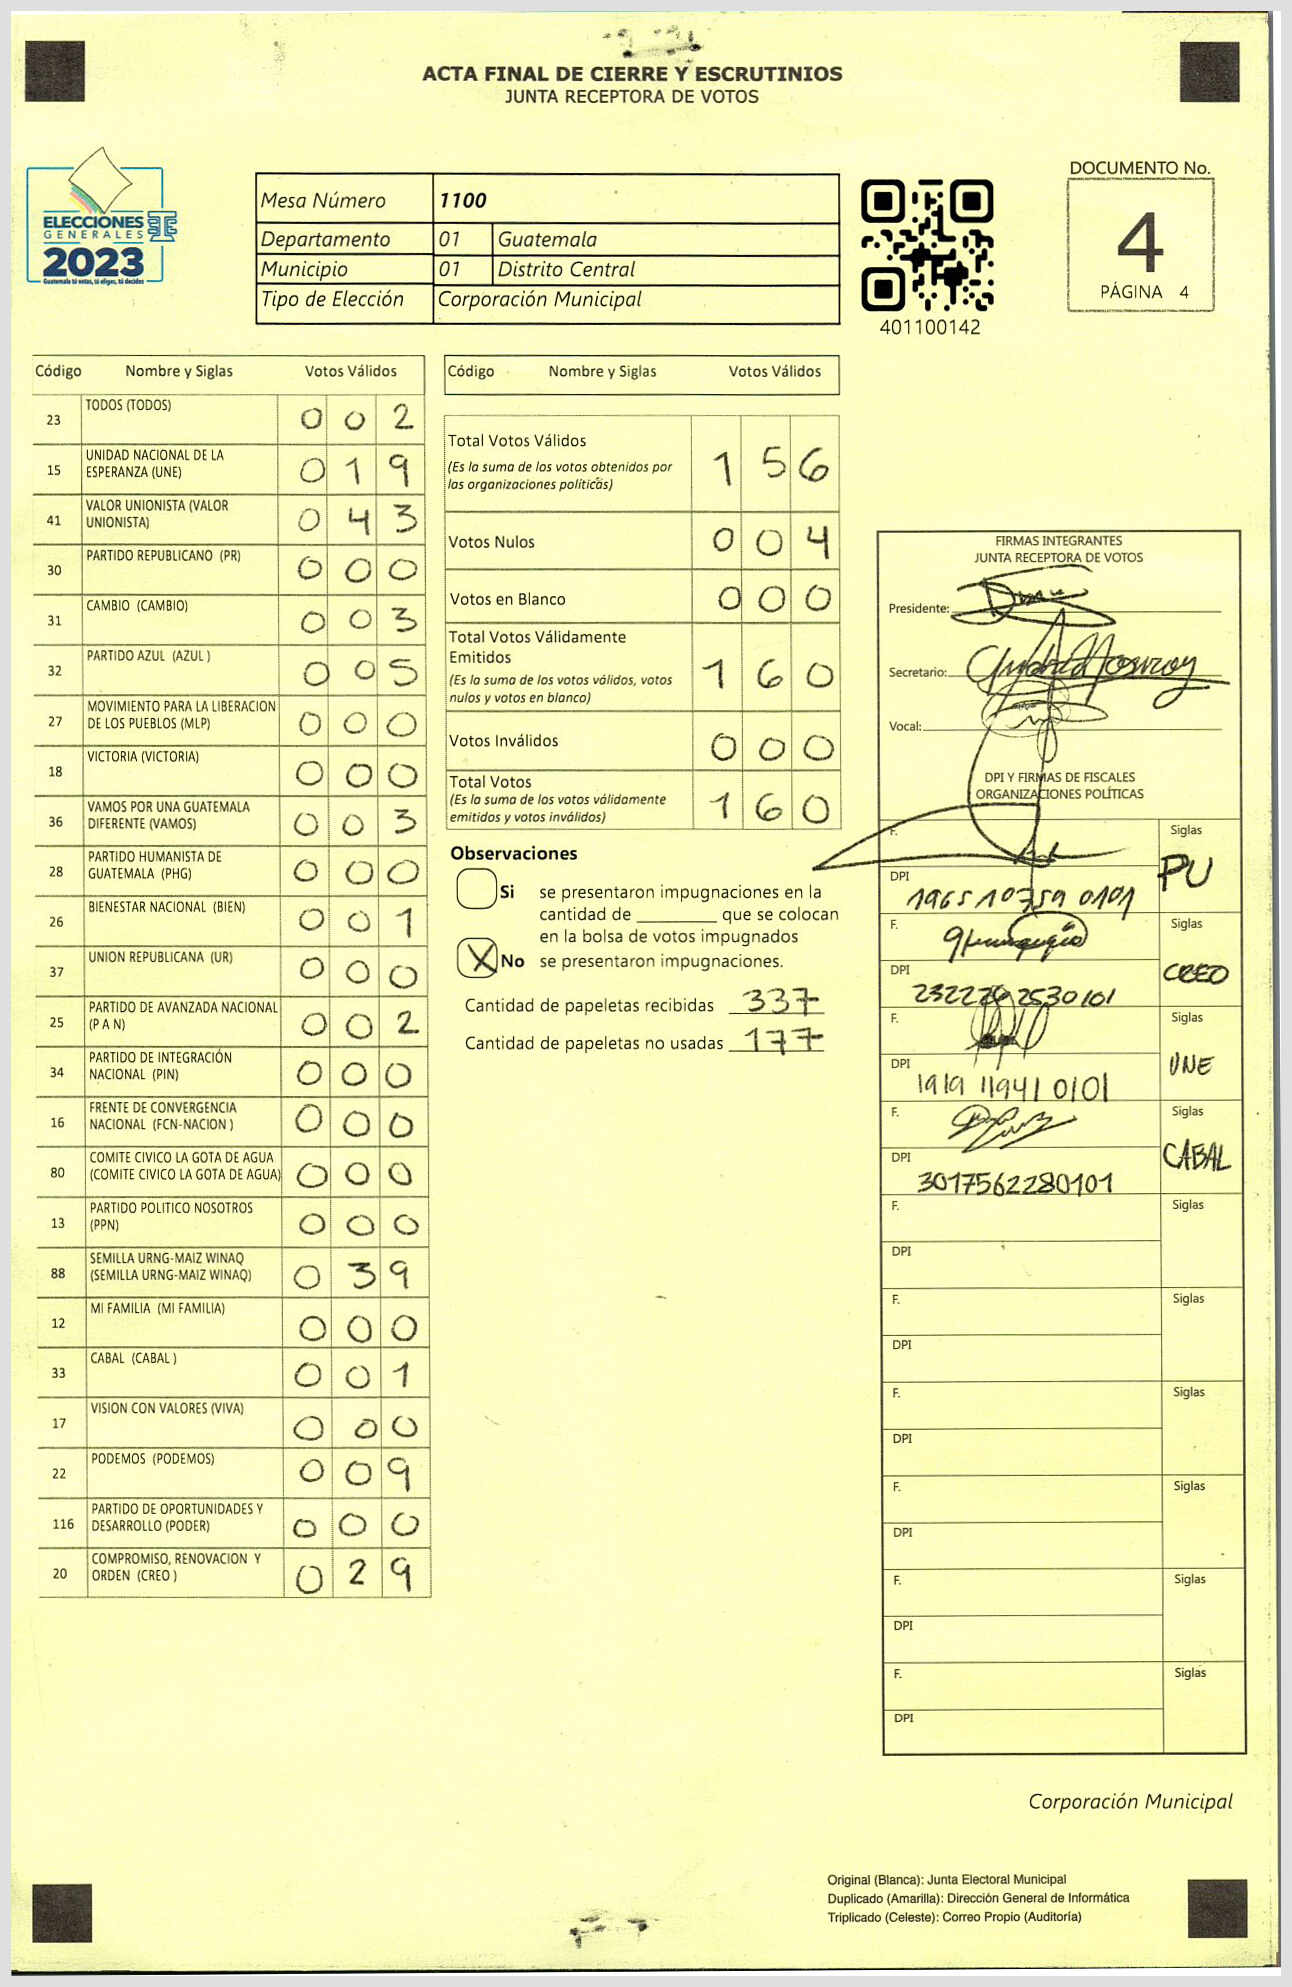 ACTA FINAL DE CIERRE Y ESCRUTINIOS
JUNTA RECEPTORA DE VOTOS
ELECCIONES
GENERALES
2023
Guatemala tú votas, tú eliges, tú decides
Mesa Número 1100
Departamento 01 Guatemala
Municipio 01 Distrito Central
Tipo de Elección Corporación Municipal
401100142
DOCUMENTO No.
4
PÁGINA 4
Código Nombre y Siglas Votos Válidos
23 TODOS (TODOS) 0 0 2
15 UNIDAD NACIONAL DE LA
ESPERANZA (UNE) 0 1 9
41 VALOR UNIONISTA (VALOR
UNIONISTA) 0 4 3
30 PARTIDO REPUBLICANO (PR) 0 0 0
31 CAMBIO (CAMBIO) 0 0 3
32 PARTIDO AZUL (AZUL ) 0 0 5
27 MOVIMIENTO PARA LA LIBERACION
DE LOS PUEBLOS (MLP) 0 0 0
18 VICTORIA (VICTORIA) 0 0 0
36 VAMOS POR UNA GUATEMALA
DIFERENTE (VAMOS) 0 0 3
28 PARTIDO HUMANISTA DE
GUATEMALA (PHG) 0 0 0
26 BIENESTAR NACIONAL (BIEN) 0 0 1
37 UNION REPUBLICANA (UR) 0 0 0
25 PARTIDO DE AVANZADA NACIONAL
(P A N) 0 0 2
34 PARTIDO DE INTEGRACIÓN
NACIONAL (PIN) 0 0 0
16 FRENTE DE CONVERGENCIA
NACIONAL (FCN-NACION ) 0 0 0
80 COMITE CIVICO LA GOTA DE AGUA
(COMITE CIVICO LA GOTA DE AGUA) 0 0 0
13 PARTIDO POLITICO NOSOTROS
(PPN) 0 0 0
88 SEMILLA URNG-MAIZ WINAQ
(SEMILLA URNG-MAIZ WINAQ) 0 3 9
12 MI FAMILIA (MI FAMILIA) 0 0 0
33 CABAL (CABAL ) 0 0 1
17 VISION CON VALORES (VIVA) 0 0 0
22 PODEMOS (PODEMOS) 0 0 9
116 PARTIDO DE OPORTUNIDADES Y
DESARROLLO (PODER) 0 0 0
20 COMPROMISO, RENOVACION Y
ORDEN (CREO ) 0 2 9
Código Nombre y Siglas Votos Válidos
Total Votos Válidos 1 5 6
(Es la suma de los votos obtenidos por
las organizaciones políticas)
Votos Nulos 0 0 4
Votos en Blanco 0 0 0
Total Votos Válidamente
Emitidos 1 6 0
(Es la suma de los votos válidos, votos
nulos y votos en blanco)
Votos Inválidos 0 0 0
Total Votos 1 6 0
(Es la suma de los votos válidamente
emitidos y votos inválidos)
Observaciones
Si se presentaron impugnaciones en la
cantidad de ________ que se colocan
en la bolsa de votos impugnados
X No se presentaron impugnaciones.
Cantidad de papeletas recibidas 337
Cantidad de papeletas no usadas 177
FIRMAS INTEGRANTES
JUNTA RECEPTORA DE VOTOS
Presidente:
Secretario:
Vocal:
DPI Y FIRMAS DE FISCALES
ORGANIZACIONES POLÍTICAS
F. Siglas
PU
DPI 1965 10759 0101
F. Siglas
CREO
DPI 232228 2530101
F. Siglas
UNE
DPI 1919 11941 0101
F. Siglas
CABAL
DPI 3017562280101
F. Siglas
DPI
F. Siglas
DPI
F. Siglas
DPI
F. Siglas
DPI
F. Siglas
DPI
F. Siglas
DPI
Corporación Municipal
Original (Blanca): Junta Electoral Municipal
Duplicado (Amarilla): Dirección General de Informática
Triplicado (Celeste): Correo Propio (Auditoría)